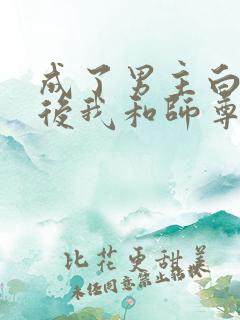 成了男主白
後我和師尊
比花更甜美
未經同意禁止轉載